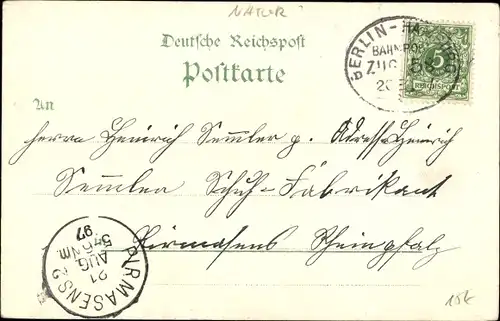 NATUR
Deutsche Reichspost
Postkarte
BERLIN-HA
BAHNPOS
ZUG
5
REICHSPOST
An
Herrn Heinrich Semmler p. Adresse Heinrich
Semmler Schuh-Fabrikant
Pirmasens Rheinpfalz
PIRMASENS 2
21
AUG
5-6 Nm
97
15k